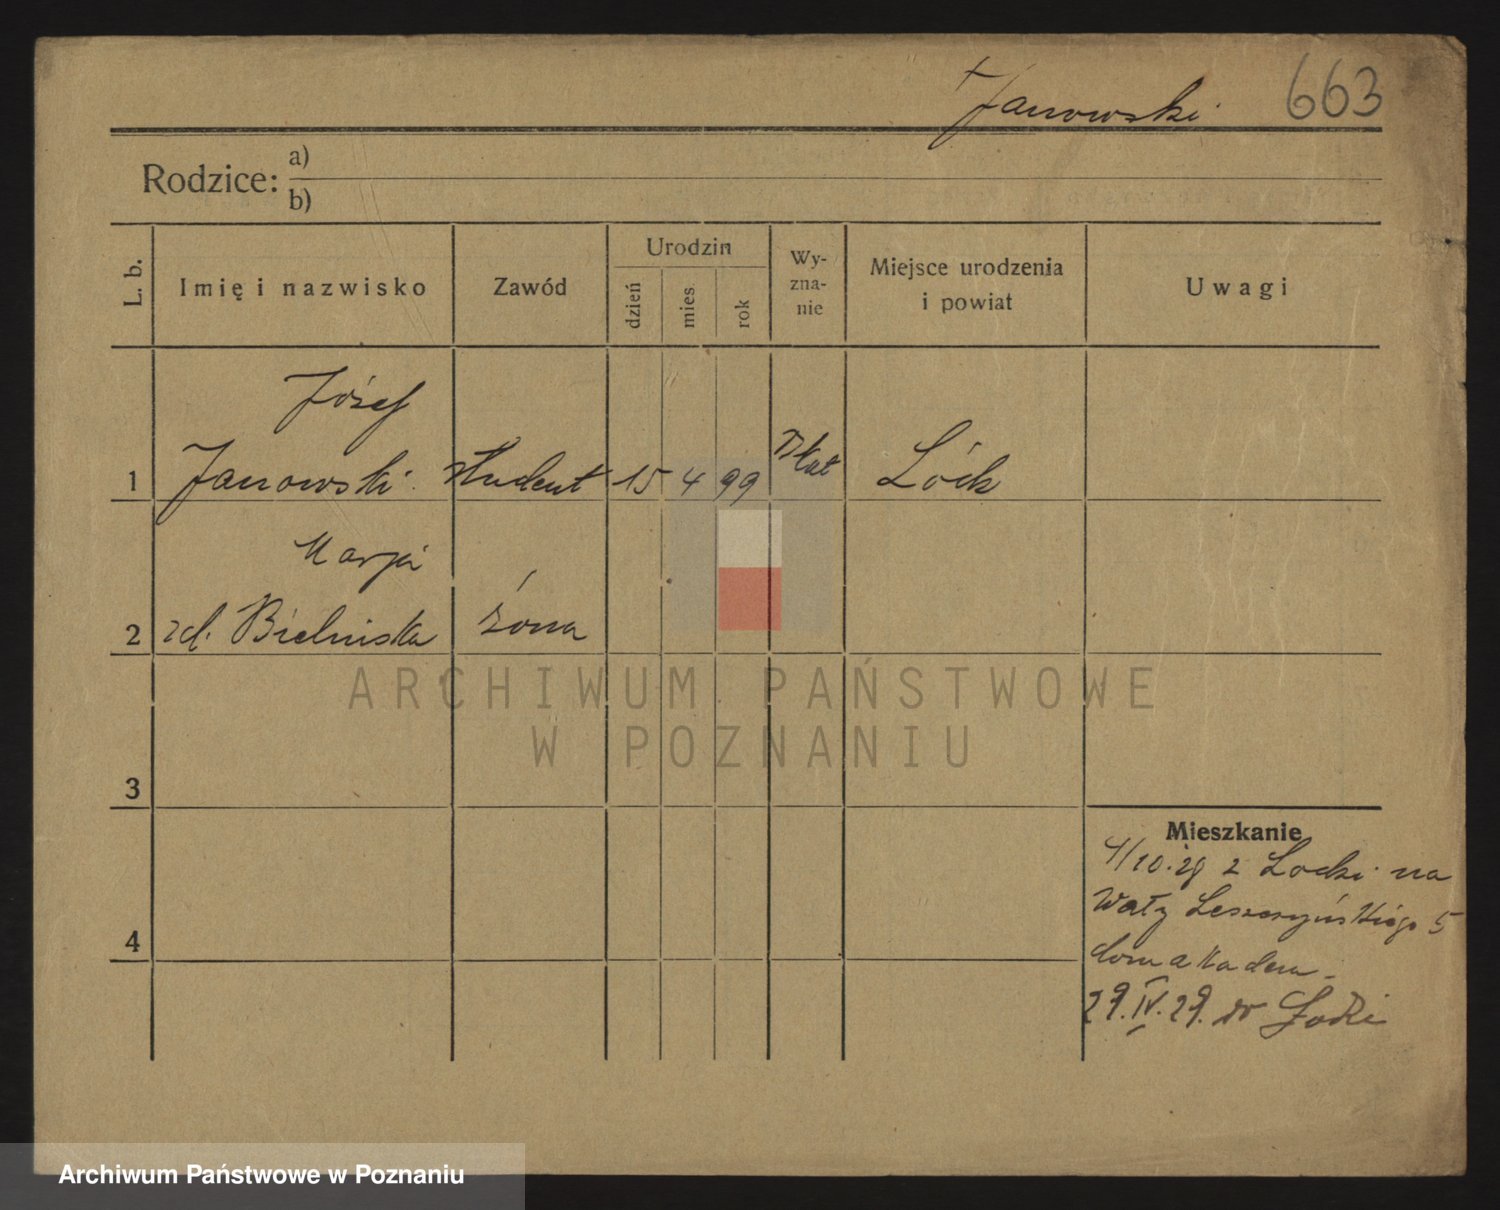 Janowski 663
Rodzice: a)
b)
L. b. Imię i nazwisko Zawód Urodzin dzień mies. rok Wy-
zna-
nie Miejsce urodzenia
i powiat Uwagi
Józef
1 Janowski student 15 4 99 kat Łódź
Marja
2 zd. Bielniska żona
ARCHIWUM PAŃSTWOWE
W POZNANIU
3
Mieszkanie
4/10.28 z Łodzi na
Wały Leszczyńskiego 5
4
dom akadem.
29.IV.29. do Łodzi
Archiwum Państwowe w Poznaniu